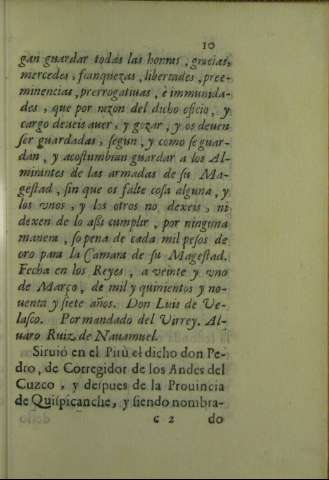 10
gan guardar todas las honras, gracias,
mercedes, franquezas, libertades, pree-
minencias, prerrogatiuas, e immunida-
des, que por razon del dicho oficio, y
cargo deueis auer, y gozar, y os deuen
ser guardadas, segun, y como se guar-
dan, y acostumbran guardar a los Al-
mirantes de las armadas de su Ma-
gestad, sin que os falte cosa alguna, y
los vnos, y los otros no dexeis, ni
dexen de lo assi cumplir, por ninguna
manera, so pena de cada mil pesos de
oro para la Camara de su Magestad.
Fecha en los Reyes, a veinte y vno
de Março, de mil y quinientos y no-
uenta y siete años. Don Luis de Ve-
lasco. Por mandado del Virrey. Al-
uaro Ruiz de Nauamuel.
Siruiò en el Pirù el dicho don Pe-
dro, de Corregidor de los Andes del
Cuzco, y despues de la Prouincia
de Quispicanche, y siendo nombra-
C 2 do